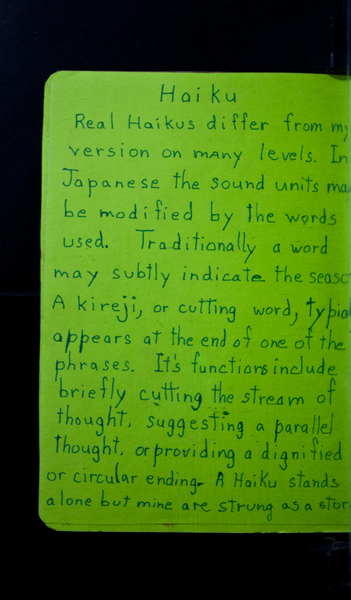 Haiku
Real Haikus differ from my
version on many levels. In
Japanese the sound units ma
be modified by the words
used. Traditionally a word
may subtly indicate the seaso
A kireji, or cutting word, typial
appears at the end of one of the
phrases. It's functions include
briefly cutting the stream of
thought, suggesting a parallel
thought, or providing a dignified
or circular ending. A Haiku stands
alone but mine are strung as a stor